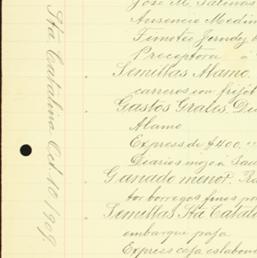 Sta Catalina Oct. 10/1909.
José M. Salinas
Ausencio Medin
Timoteo
Preceptora á
Semillas Alamo.
carneros con frijol
Gastos Grales. Du
Alamo
Express de $400.
Diarios mozo á Sau
Ganado menor. Re
los borregos finos pa
Semillas Sta Catal
embarque paja
Express caja eslabon